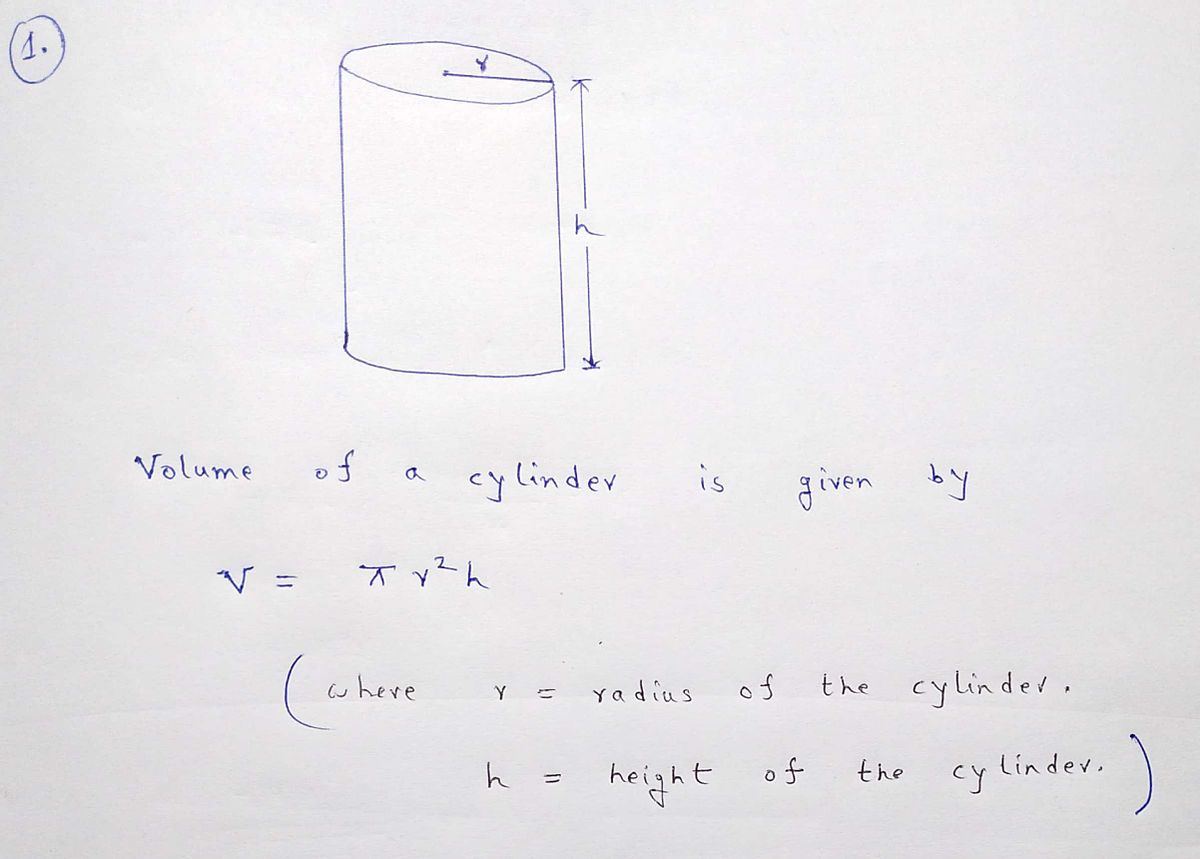 1.
r
h
Volume of a cylinder is given by
V = π r² h
( where r = radius of the cylinder.
h = height of the cylinder. )